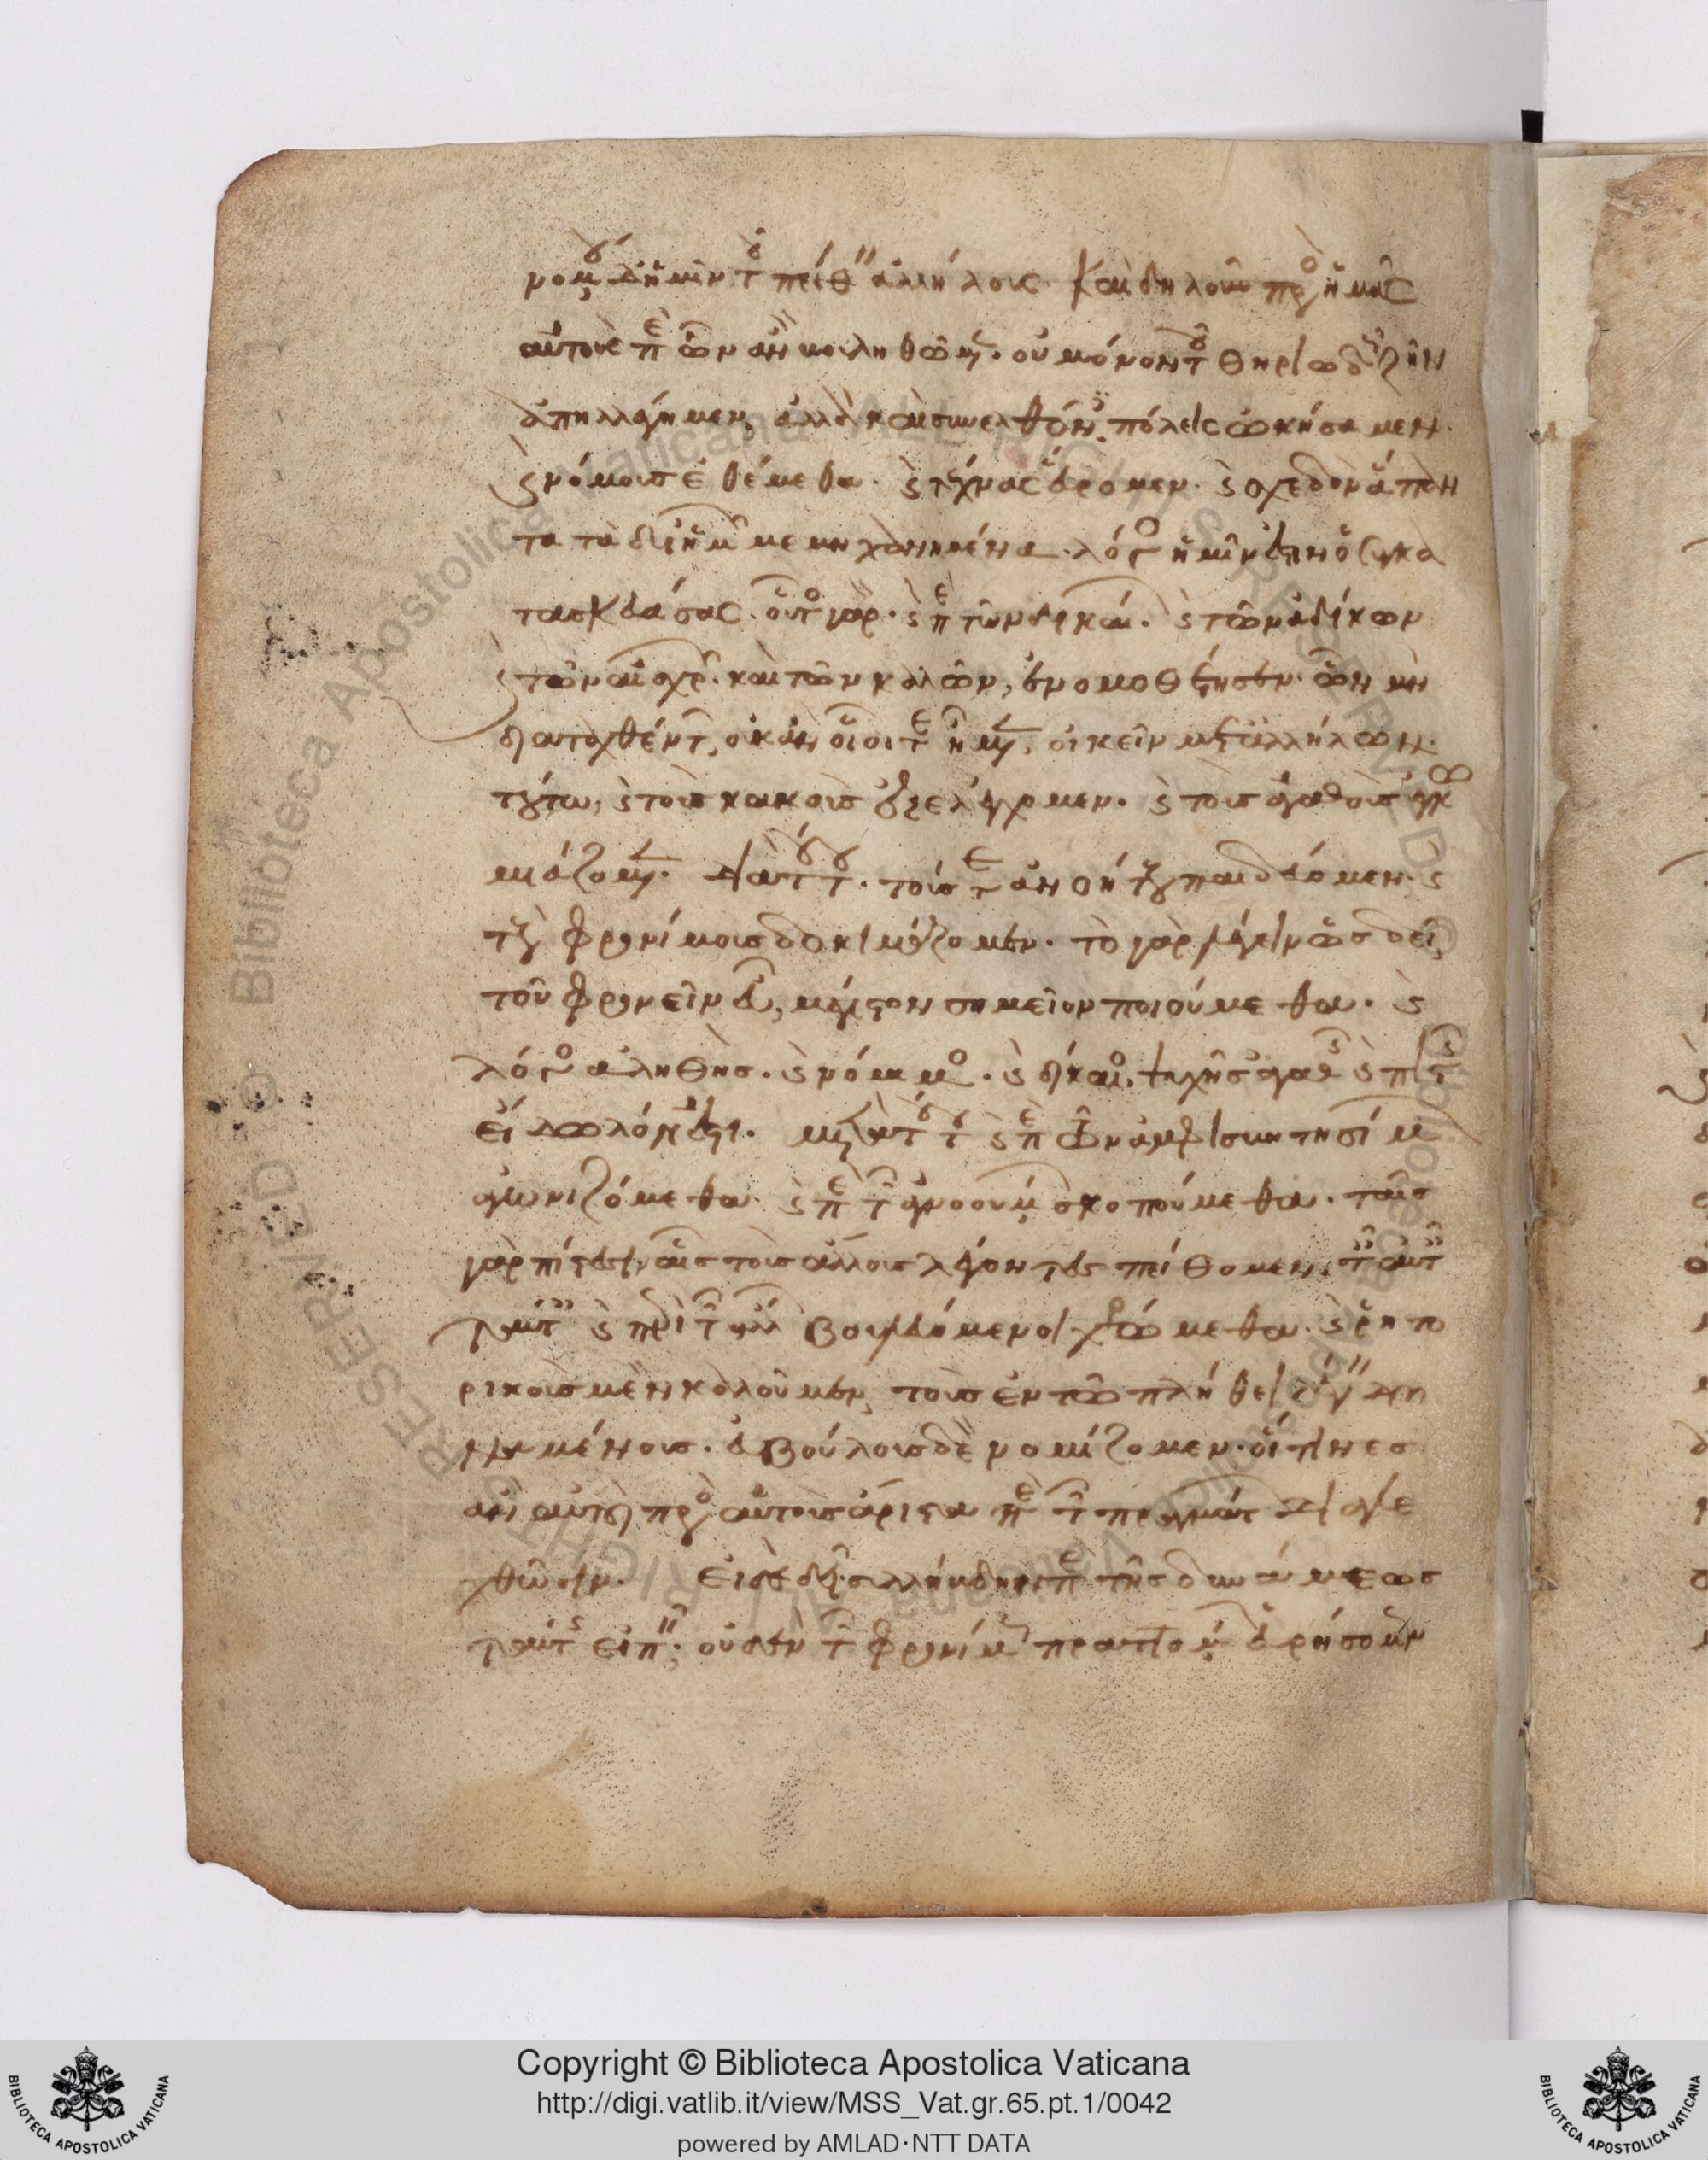 νομένου δ᾽ ἡμῖν τοῦ πείθειν ἀλλήλους καὶ δηλοῦν πρὸς ἡμᾶς
αὐτοὺς περὶ ὧν ἂν βουληθῶμεν. οὐ μόνον τοῦ θηριωδῶς ζῆν
ἀπηλλάγημεν, ἀλλὰ καὶ συνελθόντες πόλεις ᾠκήσαμεν.
καὶ νόμους ἐθέμεθα. καὶ τέχνας εὕρομεν. καὶ σχεδὸν ἅπαν
τα τὰ δι᾽ ἡμῶν μεμηχανημένα. λόγος ἡμῖν ἐστιν ὁ συγκα
τασκευάσας. οὗτος γὰρ. καὶ περὶ τῶν δικαίων. καὶ τῶν ἀδίκων
καὶ τῶν αἰσχρῶν. καὶ τῶν καλῶν, ἐνομοθέτησεν. ὧν μὴ
διαταχθέντων, οὐκ ἂν οἷοί τε ἦμεν, οἰκεῖν μετ᾽ ἀλλήλων.
τούτω, καὶ τοὺς κακοὺς ἐξελέγχομεν. καὶ τοὺς ἀγαθοὺς ἐγκω
μιάζομεν. διὰ τούτου. τούς τε ἀνοήτους παιδεύομεν. καὶ
τοὺς φρονίμους δοκιμάζομεν. τὸ γὰρ λέγειν ὡς δεῖ,
τοῦ φρονεῖν εὖ, μέγιστον σημεῖον ποιούμεθα. καὶ
λόγος ἀληθὴς. καὶ νόμιμος. καὶ δίκαιος, ψυχῆς ἀγαθῆς καὶ πιστῆς
εἴδωλόν ἐστι. μετὰ τούτου καὶ περὶ τῶν ἀμφισβητησίμων
ἀγωνιζόμεθα. καὶ περὶ τῶν ἀγνοουμένων σκοπούμεθα. ταῖς
γὰρ πίστεσιν αἷς τοὺς ἄλλους λέγοντες πείθομεν. ταῖς αὐταῖς
ταύταις καὶ περὶ τῶν ἄλλων βουλευόμενοι χρώμεθα. καὶ ῥητο
ρικοὺς μὲν καλοῦμεν, τοὺς ἐν τῶ πλήθει λέγειν δυ
ναμένους. εὐβούλους δὲ νομίζομεν. οἵτινες
ἂν αὐτοὶ πρὸς αὑτοὺς ἄριστα περὶ τῶν πραγμάτων διαλε
χθῶσιν. εἰ δὲ δεῖ συλλήβδην περὶ τῆς δυνάμεως
ταύτης εἰπεῖν, οὐδὲν τῶν φρονίμως πραττομένων εὑρήσομεν